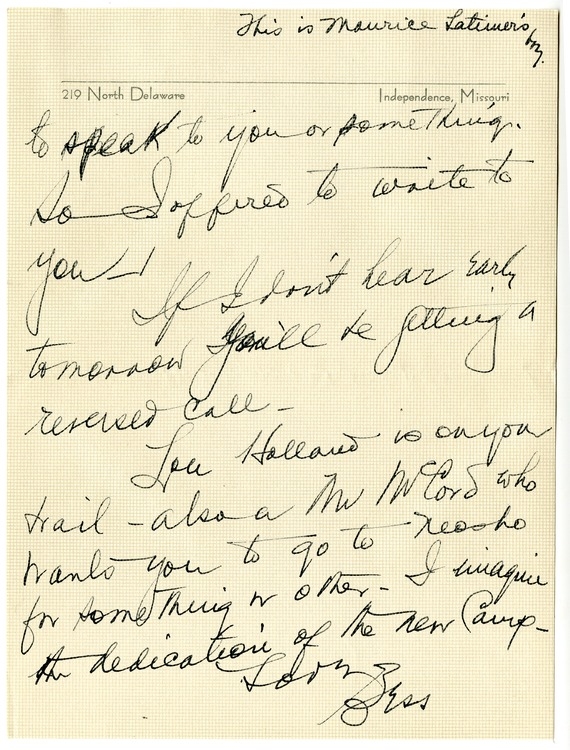 This is Maurice Latimer's
boy.
219 North Delaware Independence, Missouri
to speak to you or something.
So I offered to write to
you—!
If I don't hear early
tomorrow you'll be getting a
reversed call—
Lou Holland is on your
trail—also a Mr McCord who
wants you to go to Neosho
for something or other— I imagine
the dedication of the new Camp—
Love
Bess